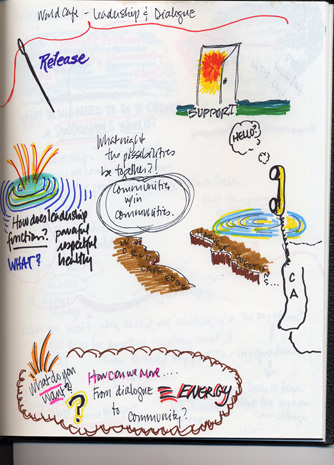 World Cafe - Leadership & Dialogue
Release
SUPPORT
HELLO?
What might
the possibilities
be together?!
Communities
w/in
communities.
How does leadership
function?
powerful
respectful
healthy
WHAT?
CA
What do you
want?
?
How can we move....
From dialogue
to
community?
= ENERGY